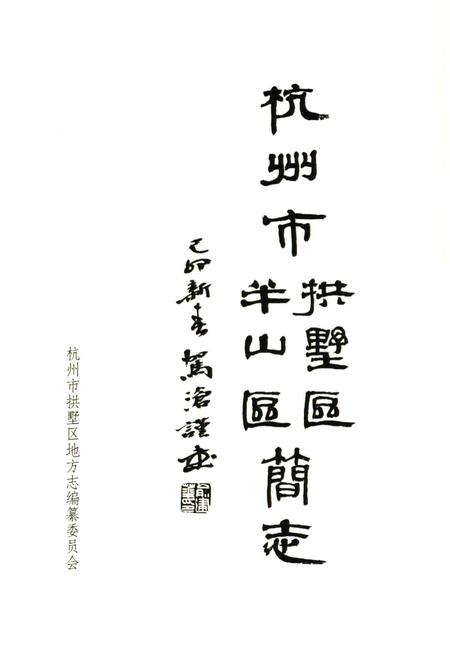 杭州市
拱墅區
半山區
簡志
己卯新春駕滄謹
俞建
華印
杭州市拱墅区地方志编纂委员会